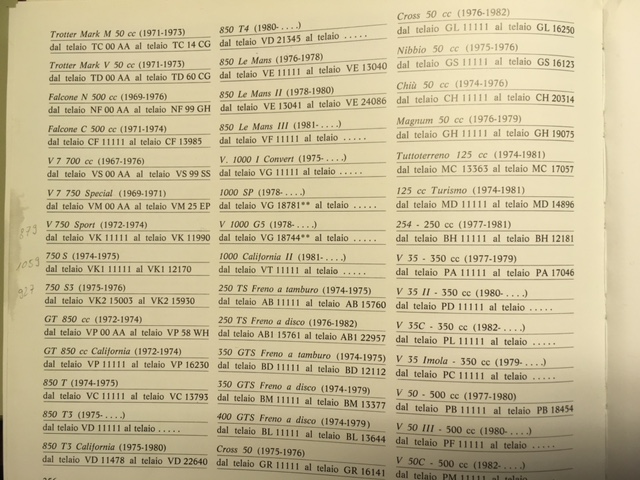 Trotter Mark M 50 cc (1971-1973)
dal telaio TC 00 AA al telaio TC 14 CG
Trotter Mark V 50 cc (1971-1973)
dal telaio TD 00 AA al telaio TD 60 CG
Falcone N 500 cc (1969-1976)
dal telaio NF 00 AA al telaio NF 99 GH
Falcone C 500 cc (1971-1974)
dal telaio CF 11111 al telaio CF 13985
V 7 700 cc (1967-1976)
dal telaio VS 00 AA al telaio VS 99 SS
V 7 750 Special (1969-1971)
dal telaio VM 00 AA al telaio VM 25 EP
V 750 Sport (1972-1974)
dal telaio VK 11111 al telaio VK 11990
750 S (1974-1975)
dal telaio VK1 11111 al telaio VK1 12170
750 S3 (1975-1976)
dal telaio VK2 15003 al telaio VK2 15930
GT 850 cc (1972-1974)
dal telaio VP 00 AA al telaio VP 58 WH
GT 850 cc California (1972-1974)
dal telaio VP 11111 al telaio VP 16230
850 T (1974-1975)
dal telaio VC 11111 al telaio VC 13793
850 T3 (1975-....)
dal telaio VD 11111 al telaio .....
850 T3 California (1975-1980)
dal telaio VD 11478 al telaio VD 22640
879
1059
927
850 T4 (1980-....)
dal telaio VD 21345 al telaio .....
850 Le Mans (1976-1978)
dal telaio VE 11111 al telaio VE 13040
850 Le Mans II (1978-1980)
dal telaio VE 13041 al telaio VE 24086
850 Le Mans III (1981-....)
dal telaio VF 11111 al telaio .....
V. 1000 I Convert (1975-....)
dal telaio VG 11111 al telaio .....
1000 SP (1978-....)
dal telaio VG 18781** al telaio .....
V 1000 G5 (1978-....)
dal telaio VG 18744** al telaio .....
1000 California II (1981-....)
dal telaio VT 11111 al telaio .....
250 TS Freno a tamburo (1974-1975)
dal telaio AB 11111 al telaio AB 15760
250 TS Freno a disco (1976-1982)
dal telaio AB1 15761 al telaio AB1 22957
350 GTS Freno a tamburo (1974-1975)
dal telaio BD 11111 al telaio BD 12112
350 GTS Freno a disco (1974-1979)
dal telaio BM 11111 al telaio BM 13377
400 GTS Freno a disco (1974-1979)
dal telaio BL 11111 al telaio BL 13644
Cross 50 (1975-1976)
dal telaio GR 11111 al telaio GR 16141
Cross 50 cc (1976-1982)
dal telaio GL 11111 al telaio GL 16250
Nibbio 50 cc (1975-1976)
dal telaio GS 11111 al telaio GS 16123
Chiù 50 cc (1974-1976)
dal telaio CH 11111 al telaio CH 20314
Magnum 50 cc (1976-1979)
dal telaio GH 11111 al telaio GH 19075
Tuttoterreno 125 cc (1974-1981)
dal telaio MC 13363 al telaio MC 17057
125 cc Turismo (1974-1981)
dal telaio MD 11111 al telaio MD 14896
254 - 250 cc (1977-1981)
dal telaio BH 11111 al telaio BH 12181
V 35 - 350 cc (1977-1979)
dal telaio PA 11111 al telaio PA 17046
V 35 II - 350 cc (1980-....)
dal telaio PD 11111 al telaio .....
V 35C - 350 cc (1982-....)
dal telaio PL 11111 al telaio .....
V 35 Imola - 350 cc (1979-....)
dal telaio PC 11111 al telaio .....
V 50 - 500 cc (1977-1980)
dal telaio PB 11111 al telaio PB 18454
V 50 III - 500 cc (1980-....)
dal telaio PF 11111 al telaio .....
V 50C - 500 cc (1982-....)
dal telaio PM 11111 al telaio .....